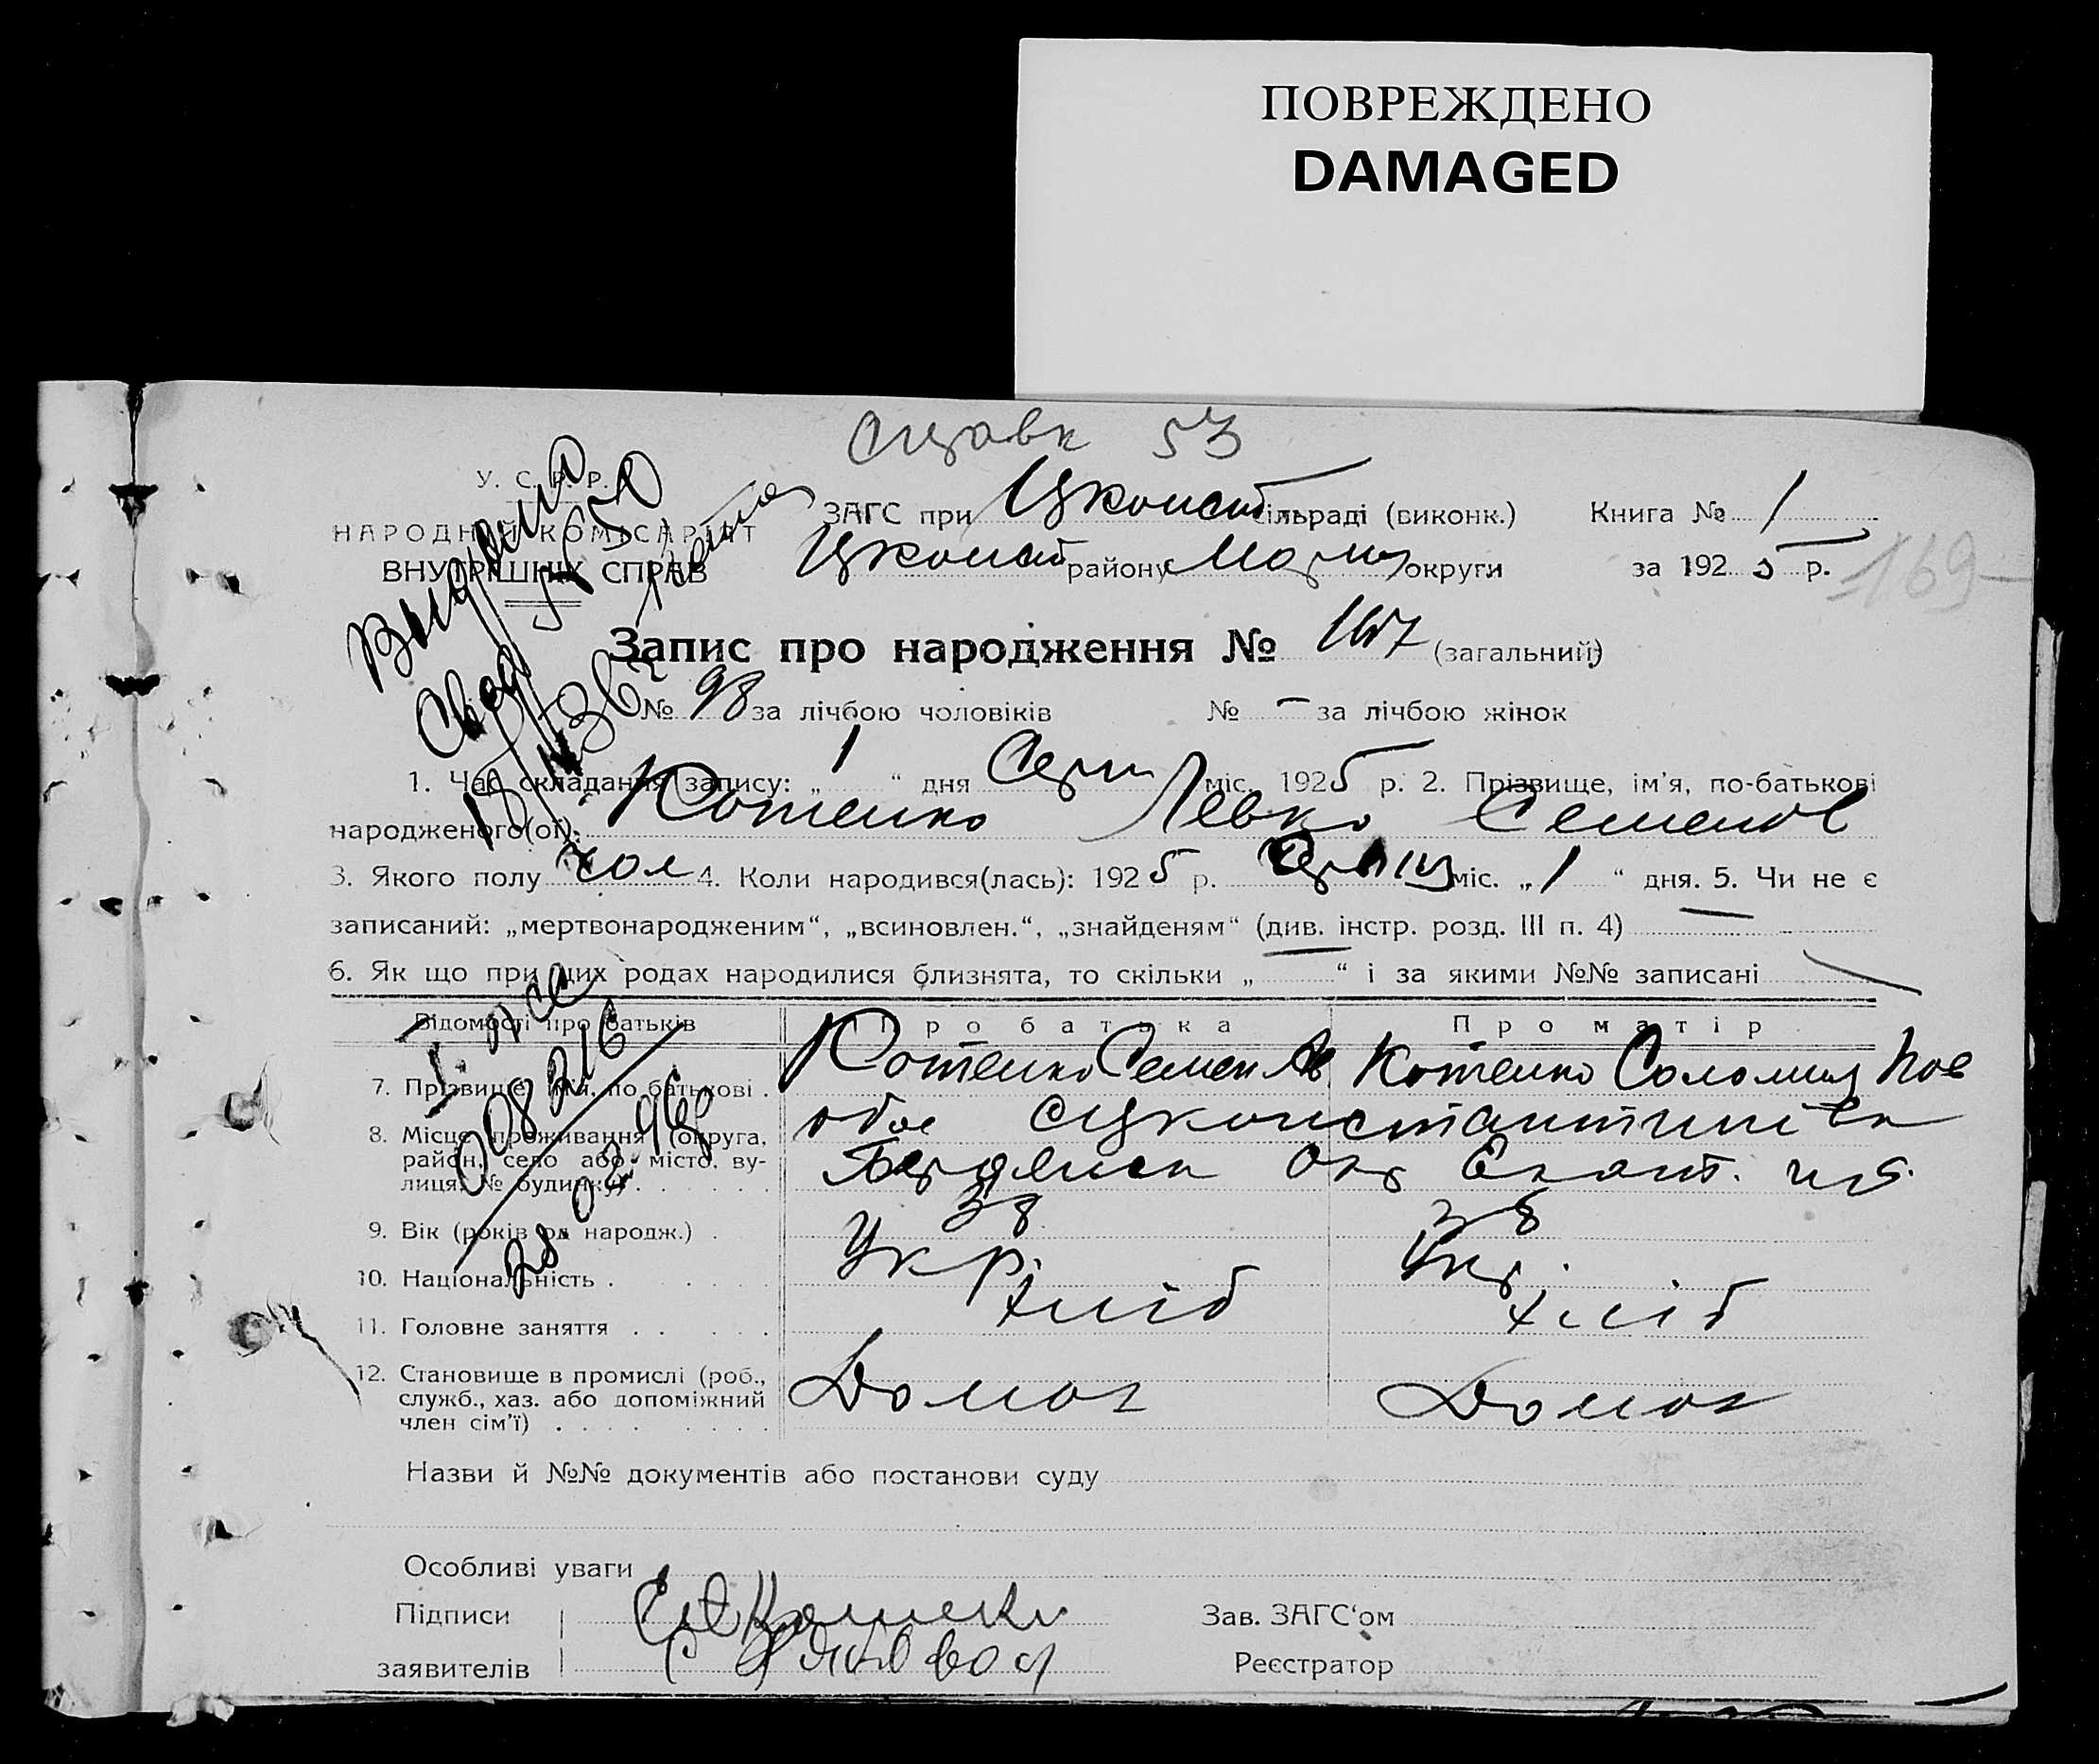 ПОВРЕЖДЕНО
DAMAGED
53
У. С. Р. Р.
НАРОДНИЙ КОМІСАРІЯТ
ВНУТРІШНІХ СПРАВ
ЗАГС при Цконст сільраді (виконк.) Книга № 1
Цконст району Мари округи за 1925 р.
169
Запис про народження № 167 (загальний)
№ 98 за лічбою чоловіків № – за лічбою жінок
1. Час складання запису: „ 1 “ дня Серп міс. 1925 р. 2. Прізвище, ім'я, по-батькові
народженого(ої): Котенко Левко Семенов
3. Якого полу чол 4. Коли народився(лась): 1925 р. міс. „ 1 “ дня. 5. Чи не є
записаний: „мертвонародженим“, „всиновлен.“, „знайденям“ (див. інстр. розд. III п. 4) —
6. Як що при цих родах народилися близнята, то скільки „ — “ і за якими №№ записані —
Відомості про батьків Про батька Про матір
7. Прізвище, ім'я, по-батькові . Котенко Семен Котенко Соломия
8. Місце проживання (округа, район, село або місто, вулиця, № будинку) . обое константинівка
Бердянск Окр Екат. губ.
9. Вік (років од народж.) . 38 38
10. Національність . Укр. Укр.
11. Головне заняття . . хліб хліб
12. Становище в промислі (роб., служб., хаз. або допоміжний член сім'ї) . Домог Домог
Назви й №№ документів або постанови суду
Особливі уваги
Підписи
заявителів
Зав. ЗАГС'ом
Реєстратор